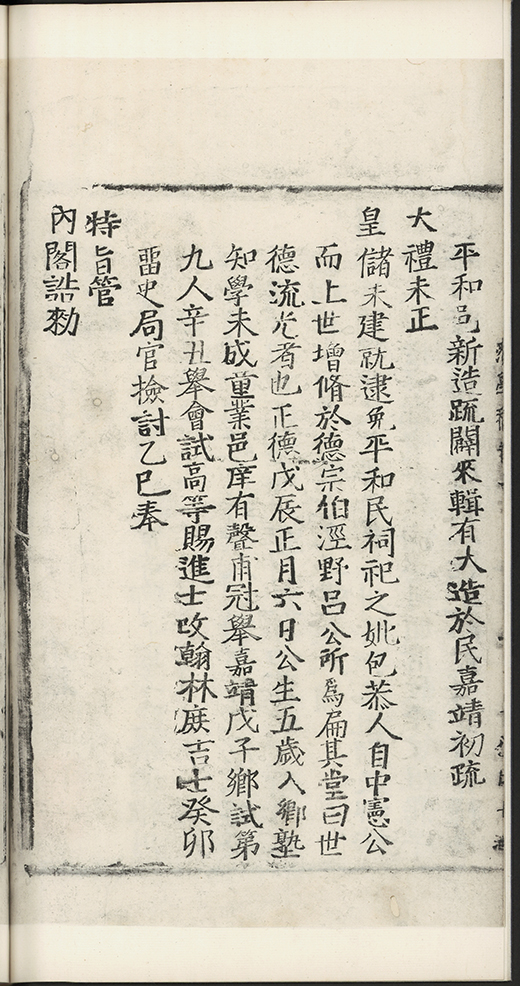 平和邑新造疏闢來輯有大造於民嘉靖初疏
大禮未正
皇儲未建就逮免平和民祠祀之妣包恭人自中憲公
而上世增脩於德宗伯涇野呂公所爲扁其堂曰世
德流光者也正德戊辰正月六日公生五歲入鄉塾
知學未成童業邑庠有聲甫冠舉嘉靖戊子鄉試第
九人辛丑舉會試高等賜進士改翰林庶吉士癸卯
畱史局官撿討乙巳奉
特旨管
內閣誥勑